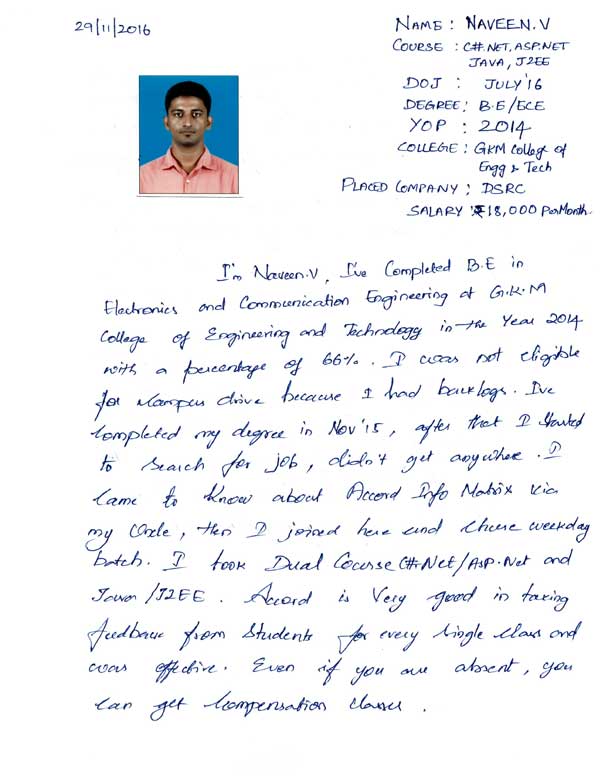 29/11/2016
NAME : NAVEEN.V
COURSE : C#.NET, ASP.NET
JAVA, J2EE
DOJ : JULY'16
DEGREE : B.E/ECE
YOP : 2014
COLLEGE : GKM College of
Engg & Tech
PLACED COMPANY : DSRC
SALARY : ₹18,000 Per Month.
I'm Naveen.V, I've Completed B.E in
Electronics and Communication Engineering at G.K.M
College of Engineering and Technology in the Year 2014
with a percentage of 66%. I was not eligible
for campus drive because I had backlogs. I've
completed my degree in Nov'15, after that I started
to search for job, didn't get anywhere. I
came to know about Accord Info Matrix via
my Uncle, then I joined here and chose weekday
batch. I took Dual Course C#.Net/ASP.Net and
Java/J2EE. Accord is Very good in taking
feedback from Students for every single class and
was effective. Even if you are absent, you
can get compensation classes.